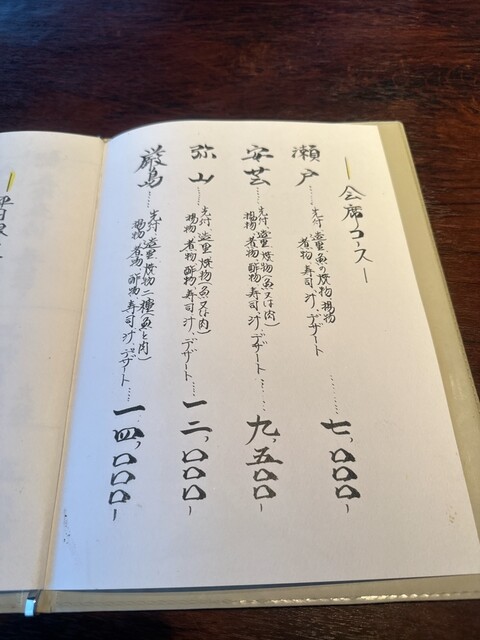 ― 会席コース ―
瀬戸……先付、造里、魚の焼物、揚物
煮物、寿司、汁、デザート………七、〇〇〇~
安芸……先付、造里、焼物(魚又は肉)
揚物、煮物、酢物、寿司、汁、デザート……九、五〇〇~
弥山……先付、造里、焼物(魚又は肉)
揚物、煮物、酢物、寿司、汁、デザート……一二、〇〇〇~
厳島……先付、造里、焼物二種(魚と肉)
揚物、煮物、酢物、寿司、汁、デザート……一四、〇〇〇~